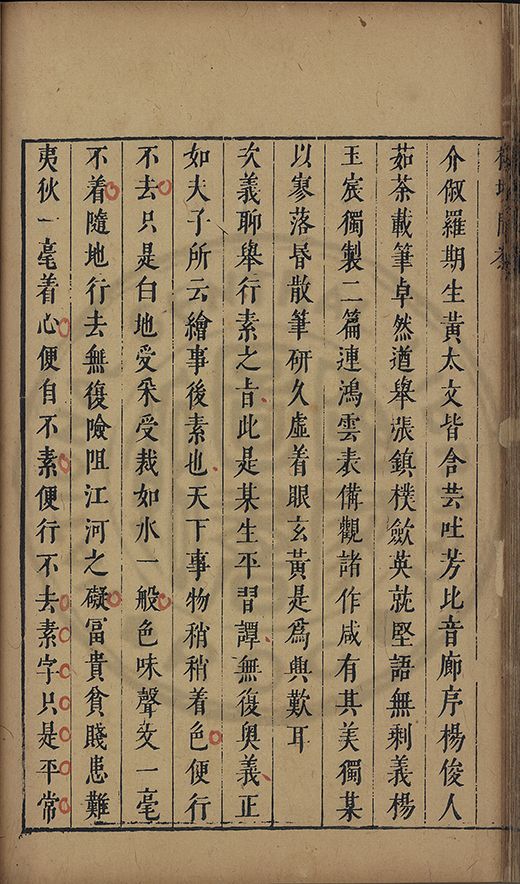 介俶羅期生黃太文皆含芸吐芳比音廊序楊俊人
茹荼載筆卓然遒舉張鎮樸歛英就堅語無剩義楊
玉宸獨製二篇連鴻雲表備觀諸作咸有其美獨某
以寥落昏散筆研久虛着眼玄黃是爲興歎耳
次義聊舉行素之旨此是某生平習譚無復奧義正
如夫子所云繪事後素也天下事物稍稍着色便行
不去只是白地受采受裁如水一般色味聲文一毫
不着隨地行去無復險阻江河之礙富貴貧賤患難
夷狄一毫着心便自不素便行不去素字只是平常